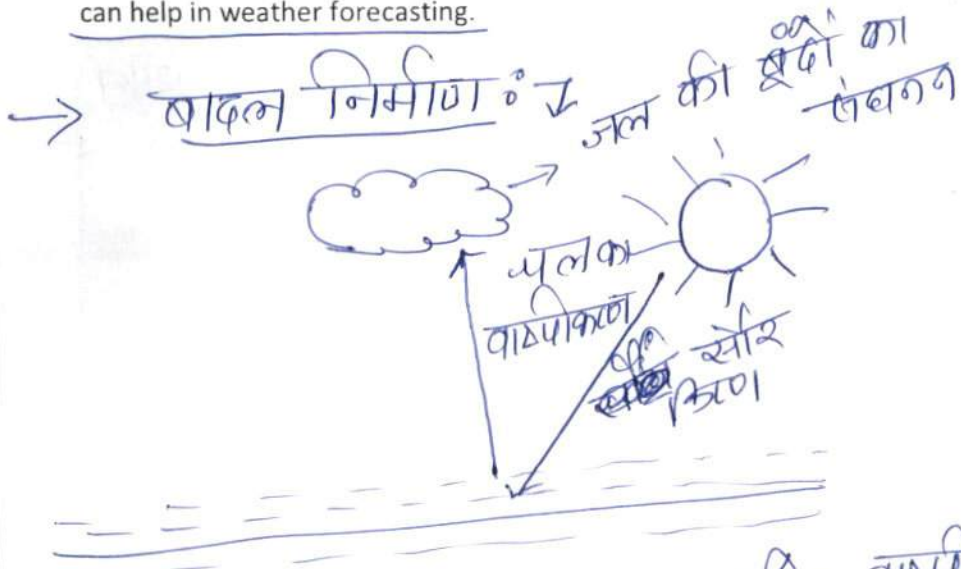 can help in weather forecasting.
→ बादल निर्माण :
जल की बूंदों का
संघनन
जल का
वाष्पीकरण
सौर
किरण